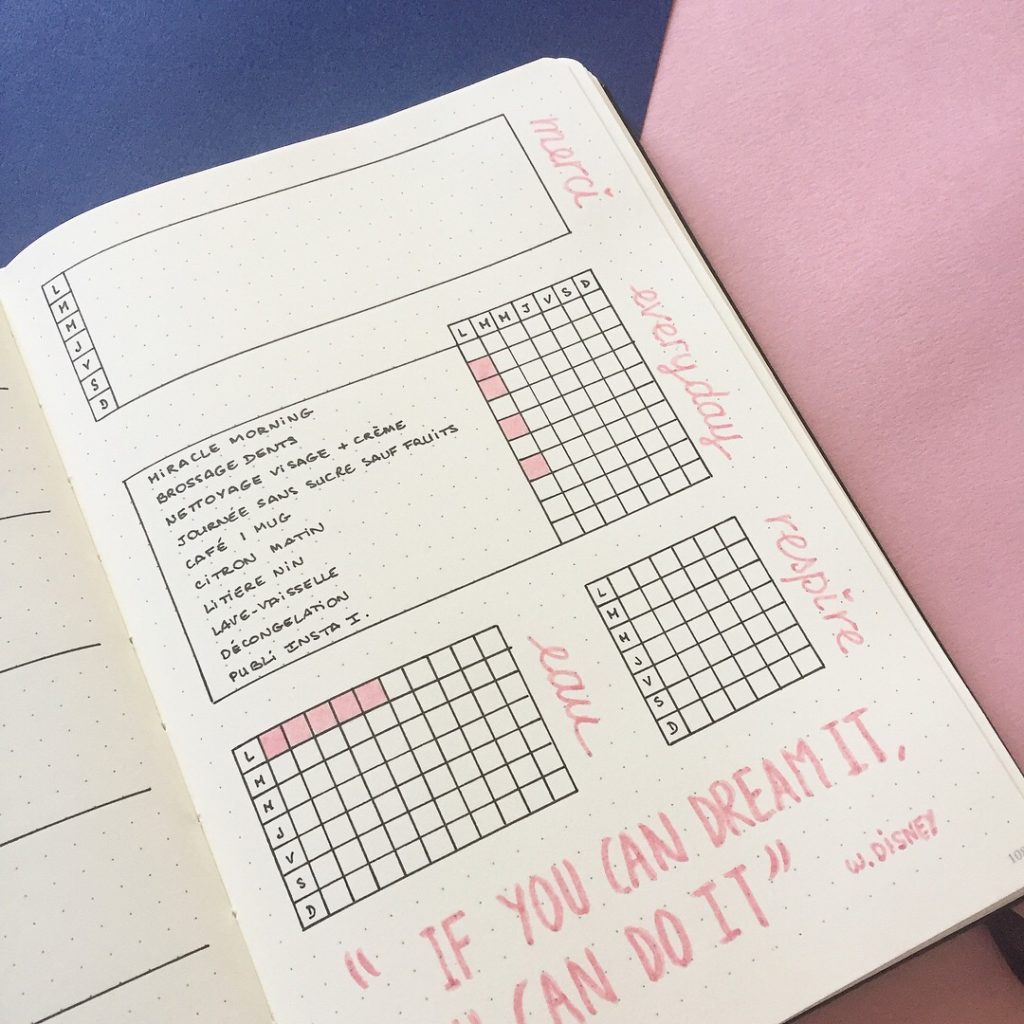 merci
L
M
M
J
V
S
D
everyday
L M M J V S D
MIRACLE MORNING
BROSSAGE DENTS
NETTOYAGE VISAGE + CRÈME
JOURNÉE SANS SUCRE SAUF FRUITS
CAFÉ 1 MUG
CITRON MATIN
LITIÈRE NIN
LAVE-VAISSELLE
DÉCONGELATION
PUBLI INSTA I.
respire
L
M
M
J
V
S
D
eau
L
M
M
J
V
S
D
“ IF YOU CAN DREAM IT,
CAN DO IT ”
W. DISNEY